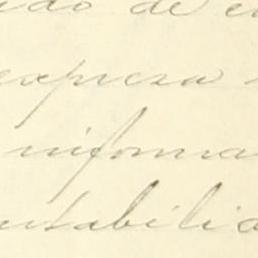 ido de e
expresa
informa
ntabilia